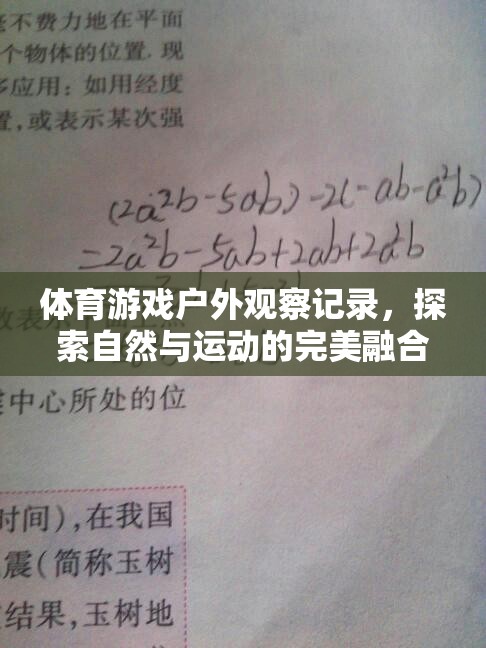 毫不费力地在平面
个物体的位置. 现
多应用：如用经度
置，或表示某次强
(2a²b-5ab)-2(-ab-a²b)
=2a²b-5ab+2ab+2a²b
体育游戏户外观察记录，探
索自然与运动的完美融合
中心所处的位
时间)，在我国
震(简称玉树
结果，玉树地